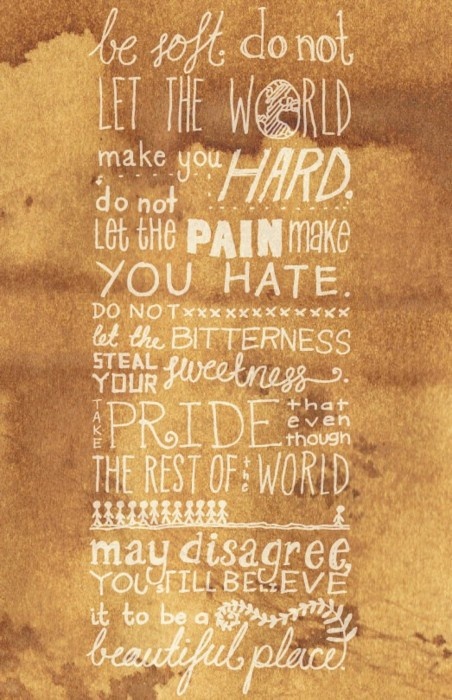 be soft. do not
LET THE WORLD
make you HARD.
do not
let the PAIN make
YOU HATE.
DO NOT
let the BITTERNESS
STEAL
YOUR sweetness.
TAKE PRIDE that
even
though
THE REST OF the WORLD
may disagree,
YOU STILL BELIEVE
it to be a
beautiful place.